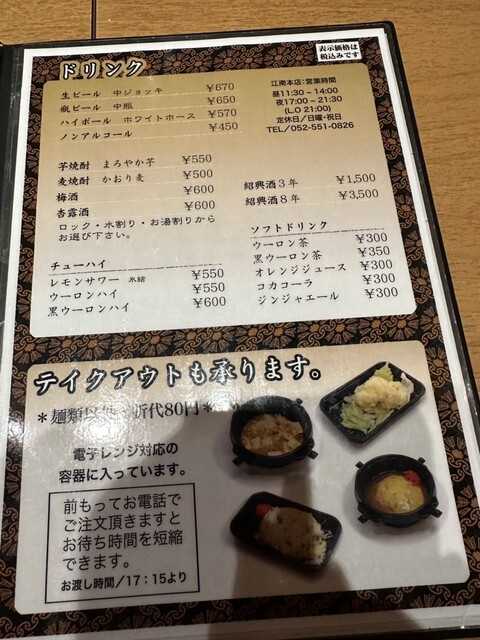 表示価格は
税込みです
ドリンク
生ビール 中ジョッキ ¥670
瓶ビール 中瓶 ¥650
ハイボール ホワイトホース ¥570
ノンアルコール ¥450
江南本店:営業時間
昼11:30 ~ 14:00
夜17:00 ~ 21:30
(L.O 21:00)
定休日/日曜・祝日
TEL/052-551-0826
芋焼酎 まろやか芋 ¥550
麦焼酎 かおり麦 ¥500
梅酒 ¥600
杏露酒 ¥600
ロック・水割り・お湯割りから
お選び下さい。
紹興酒3年 ¥1,500
紹興酒8年 ¥3,500
チューハイ
レモンサワー 氷結 ¥550
ウーロンハイ ¥550
黒ウーロンハイ ¥600
ソフトドリンク
ウーロン茶 ¥300
黒ウーロン茶 ¥350
オレンジジュース ¥300
コカコーラ ¥300
ジンジャエール ¥300
テイクアウトも承ります。
*麺類 代80円*
電子レンジ対応の
容器に入っています。
前もってお電話で
ご注文頂きますと
お待ち時間を短縮
できます。
お渡し時間/17:15より